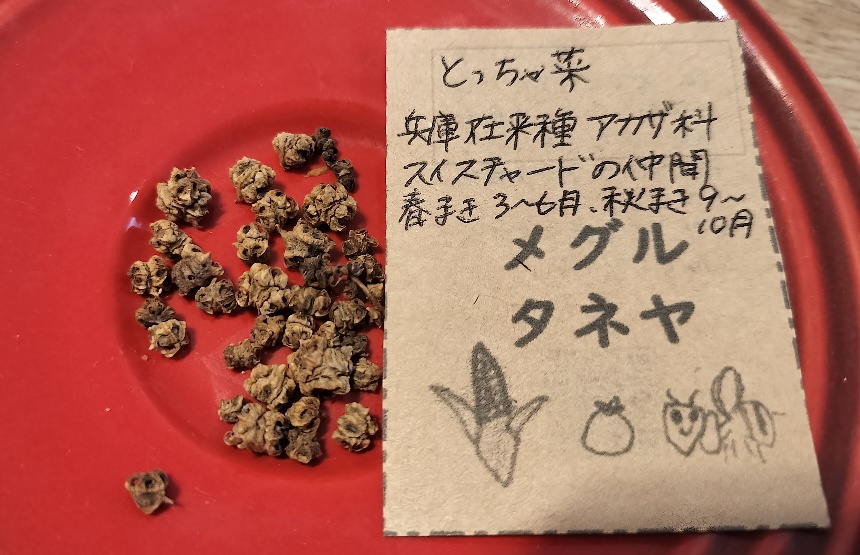 とっちゃ菜
兵庫在来種 アカザ科
スイスチャードの仲間
春まき 3〜6月、秋まき 9〜
10月
メグル
タネヤ